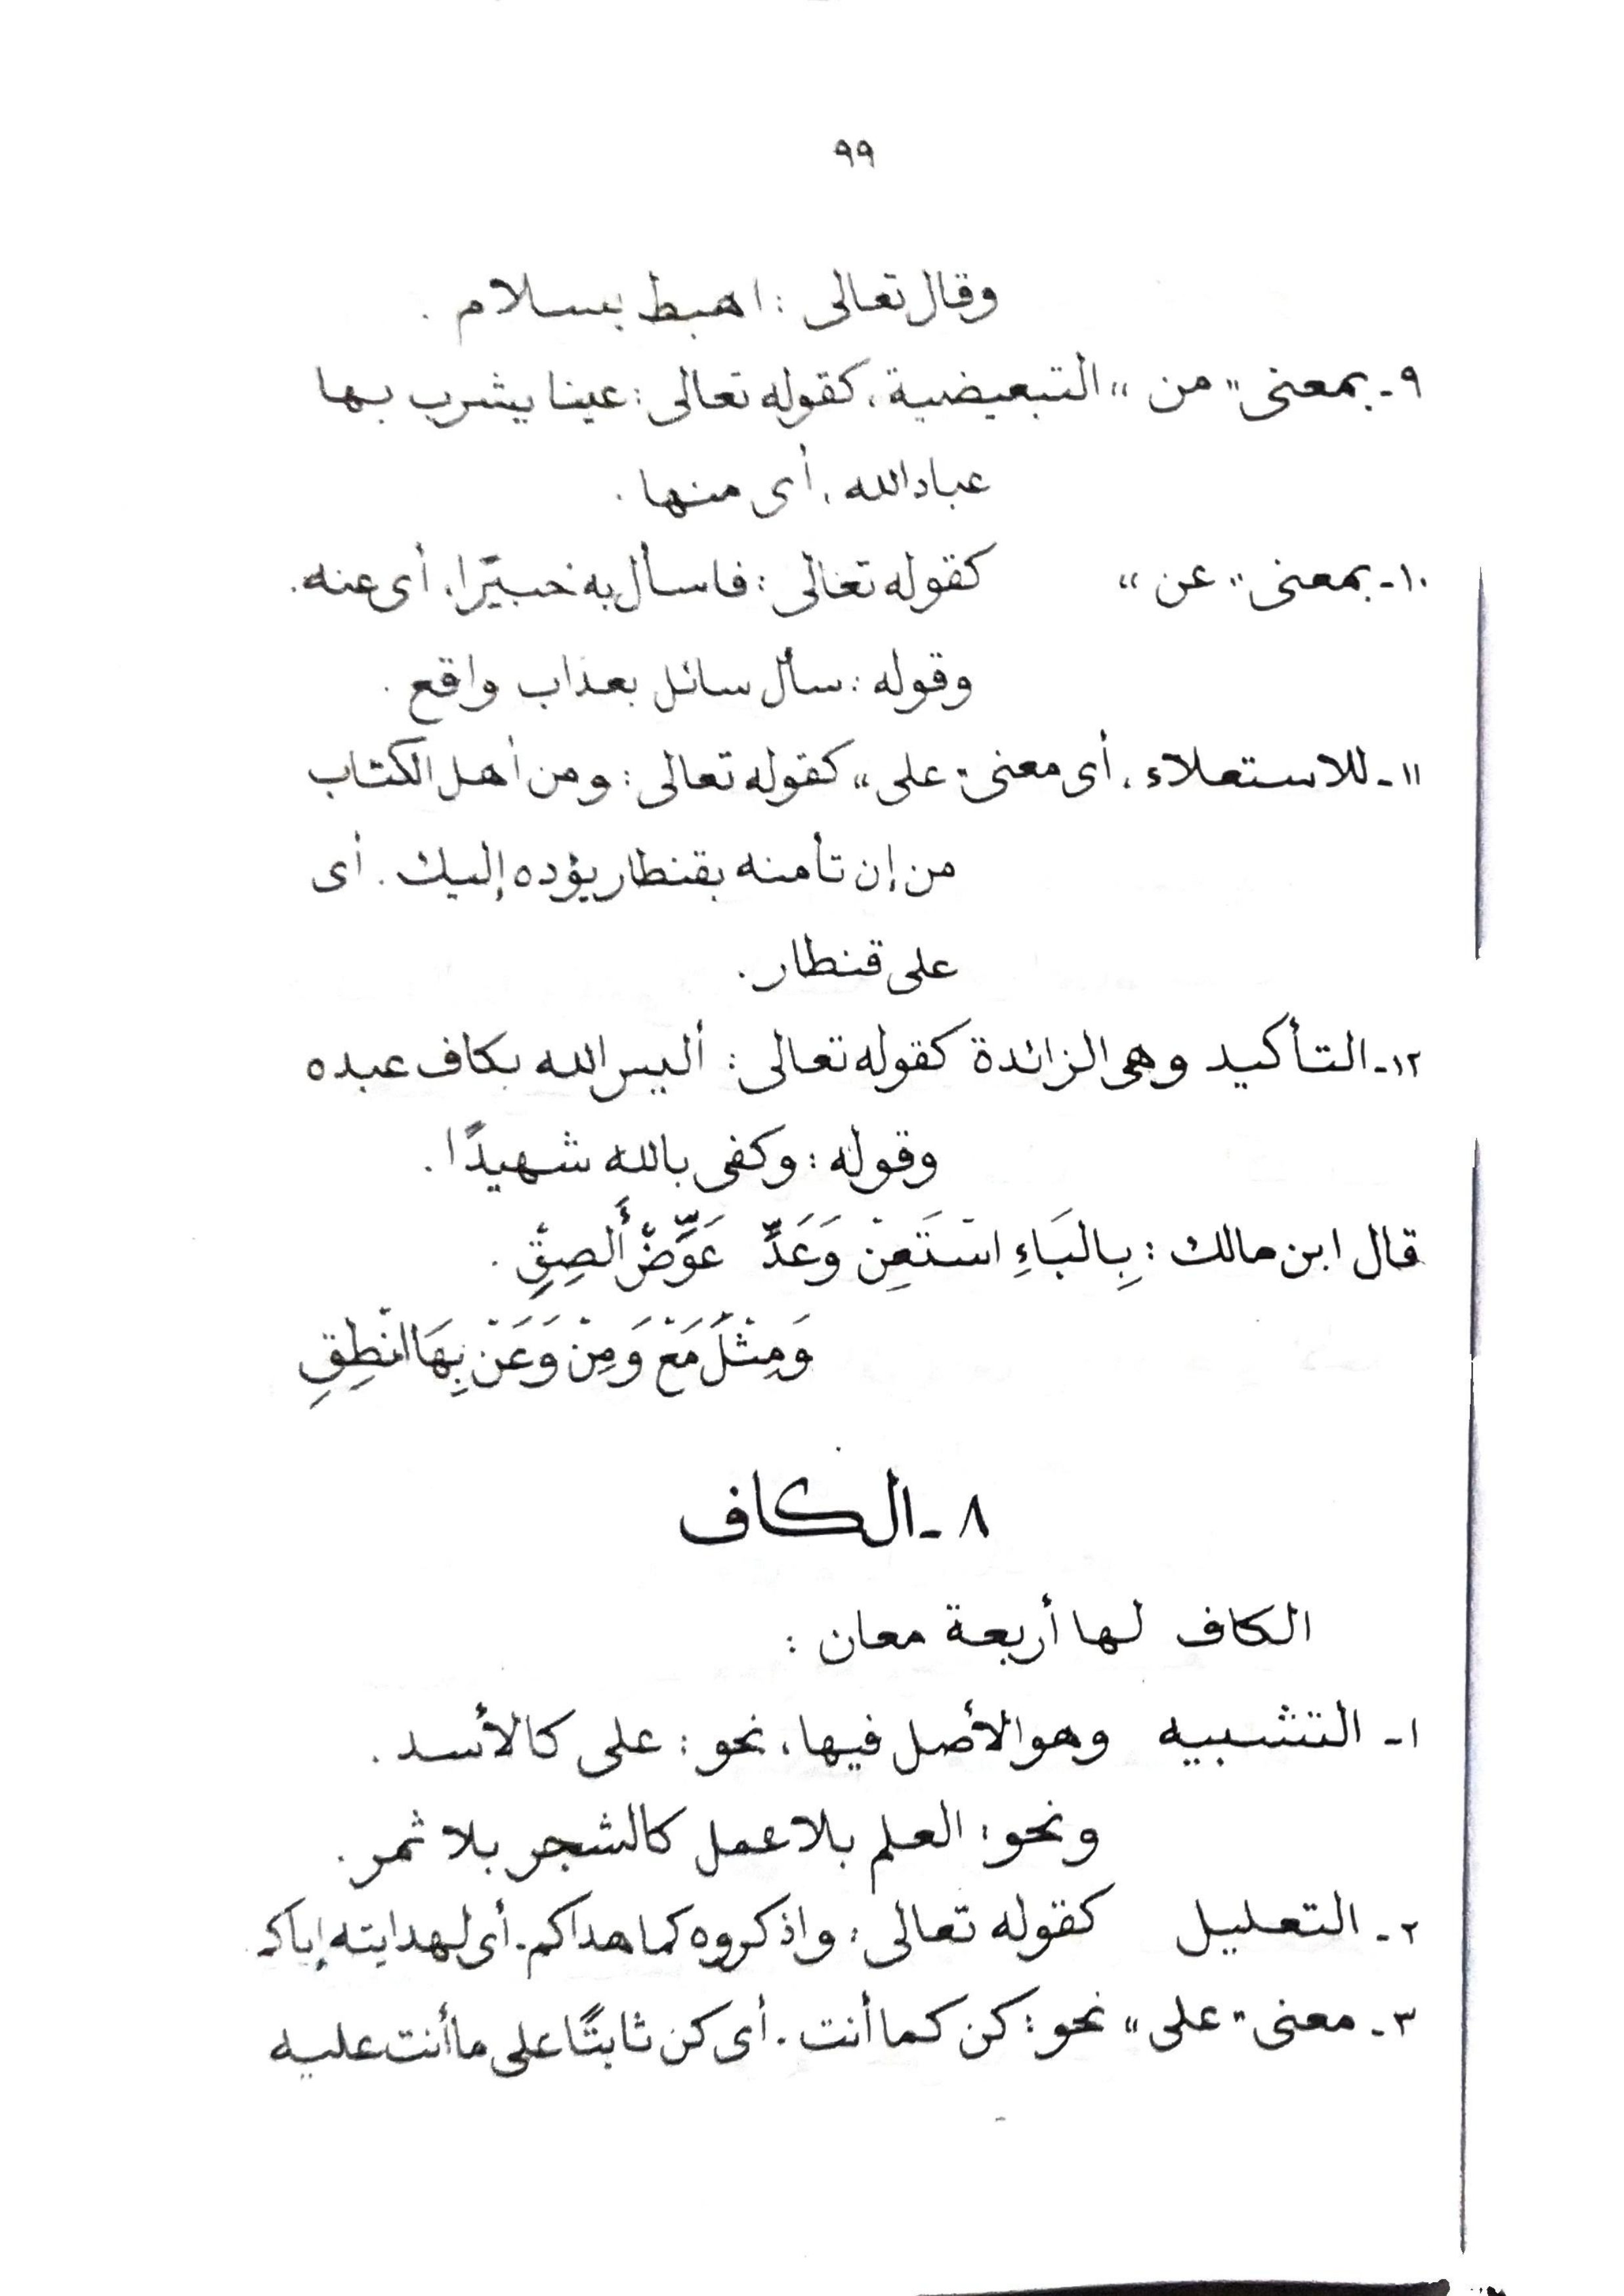 ٩٩
وقال تعالى : اهبط بسلام .
٩ـ بمعنى " من " التبعيضية ، كقوله تعالى : عينا يشرب بها
عباد الله ، أى منها .
١٠ـ بمعنى " عن " كقوله تعالى : فاسأل به خبيرًا ، أى عنه .
وقوله : سأل سائل بعذاب واقع .
١١ـ للاستعلاء ، أى معنى " على " كقوله تعالى : ومن أهل الكتاب
من إن تأمنه بقنطار يؤده إليك . أى
على قنطار .
١٢ـ التأكيد وهى الزائدة كقوله تعالى : أليس الله بكاف عبده
وقوله : وكفى بالله شهيدًا .
قال ابن مالك : بِالبَاءِ اسْتَعِنْ وَعَدِّ عَوِّضْ أَلْصِقِ .
وَمِثْلَ مَعْ وَمِنْ وَعَنْ بِهَا انْطِقِ
٨ ـ الكاف
الكاف لها أربعة معان :
١ـ التشبيه وهو الأصل فيها ، نحو : على كالأسد .
ونحو : العلم بلا عمل كالشجر بلا ثمر .
٢ـ التعليل كقوله تعالى : واذكروه كما هداكم . أى لهدايته
٣ـ معنى " على " نحو : كن كما أنت . أى كن ثابتًا على ما أنت عليه